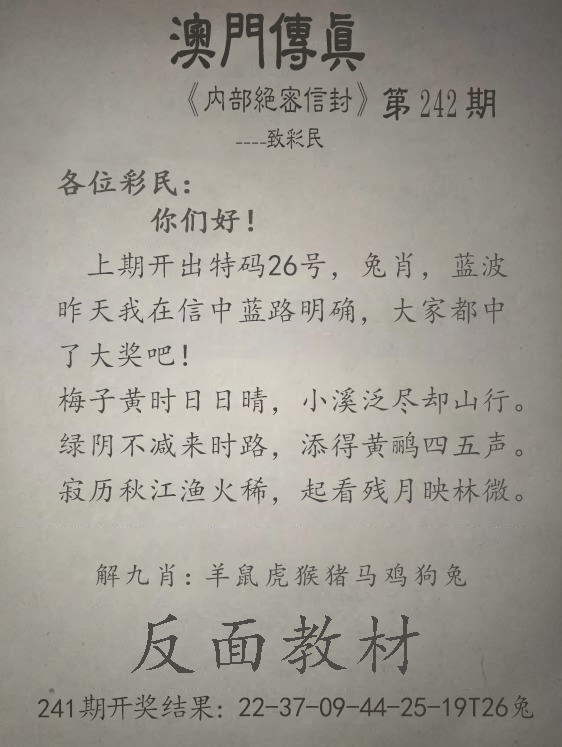 澳門傳真
《内部絕密信封》第242期
----致彩民
各位彩民：
你们好！
上期开出特码26号，兔肖，蓝波
昨天我在信中蓝路明确，大家都中
了大奖吧！
梅子黄时日日晴，小溪泛尽却山行。
绿阴不减来时路，添得黄鹂四五声。
寂历秋江渔火稀，起看残月映林微。
解九肖：羊鼠虎猴猪马鸡狗兔
反面教材
241期开奖结果：22-37-09-44-25-19T26兔